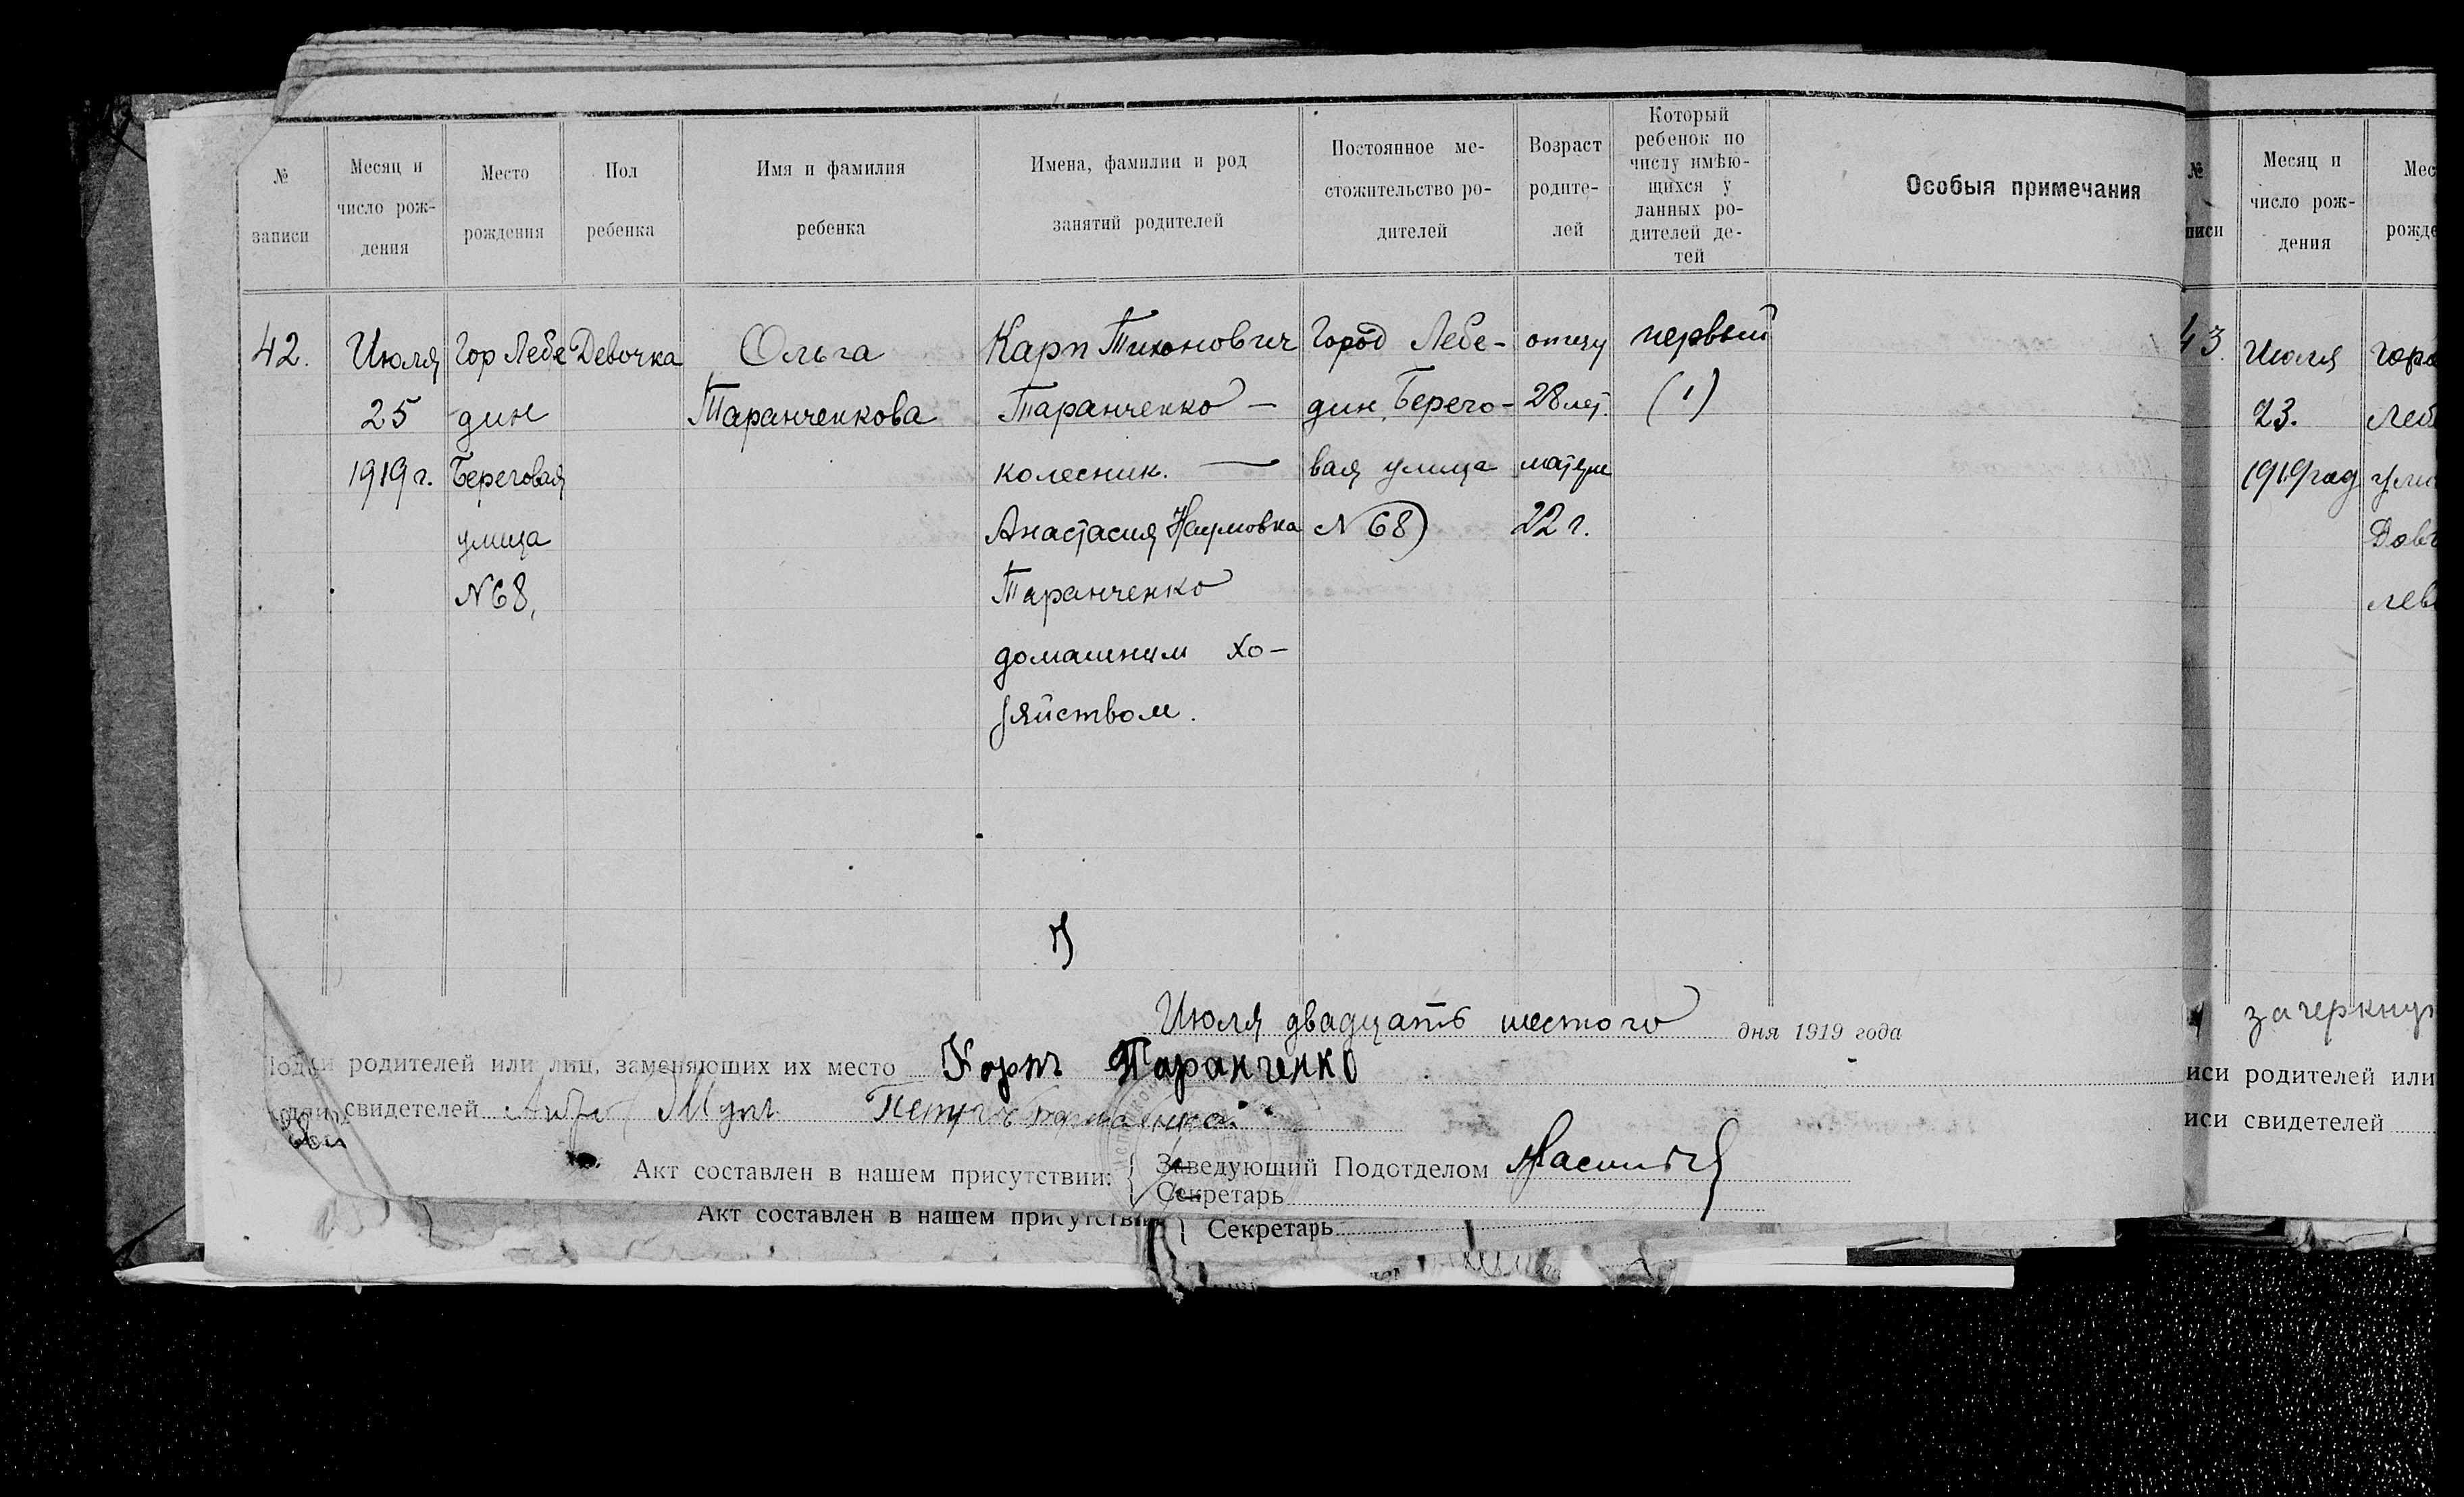 № записи
Месяц и число рож-дения
Место рождения
Пол ребенка
Имя и фамилия ребенка
Имена, фамилии и род занятий родителей
Постоянное ме-стожительство ро-дителей
Возраст родите-лей
Который ребенок по числу имѣю-щихся у данных ро-дителей де-тей
Особыя примечания
42.
Июля
25
1919 г.
Гор Лебе
дин
Береговая
улица
N 68,
Девочка
Ольга
Таранченкова
Карп Тихонович
Таранченко —
колесник. —
Анастасия Наумовна
Таранченко
домашним хо-
зяйством.
Город Лебе-
дин, Берего-
вая улица
N 68)
отцу
28 лет.
матери
22 г.
первый
(1)
Июля двадцать шестого дня 1919 года
родителей или лиц, заменяющих их место Карпъ Таранченко
свидетелей
Акт составлен в нашем присутствии:
Заведующий Подотделом
Секретарь
Акт составлен в нашем присутствии
Секретарь
№
писи
Месяц и число рож-дения
Мес
рожде
43.
Июля
23.
1919 год
горо
Леб
ули
Дов
лев
зачеркну
иси родителей или
иси свидетелей